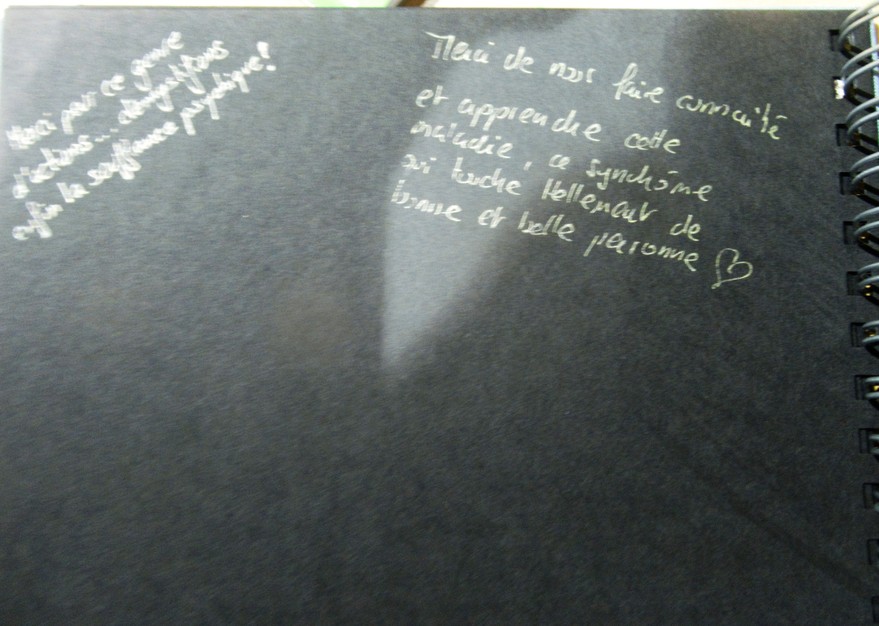 Merci pour ce genre
d'actions... démystifions
enfin la souffrance psychique!
Merci de nous faire connaître
et apprendre cette
maladie, ce synchôme
qui touche tellement de
bonne et belle personne